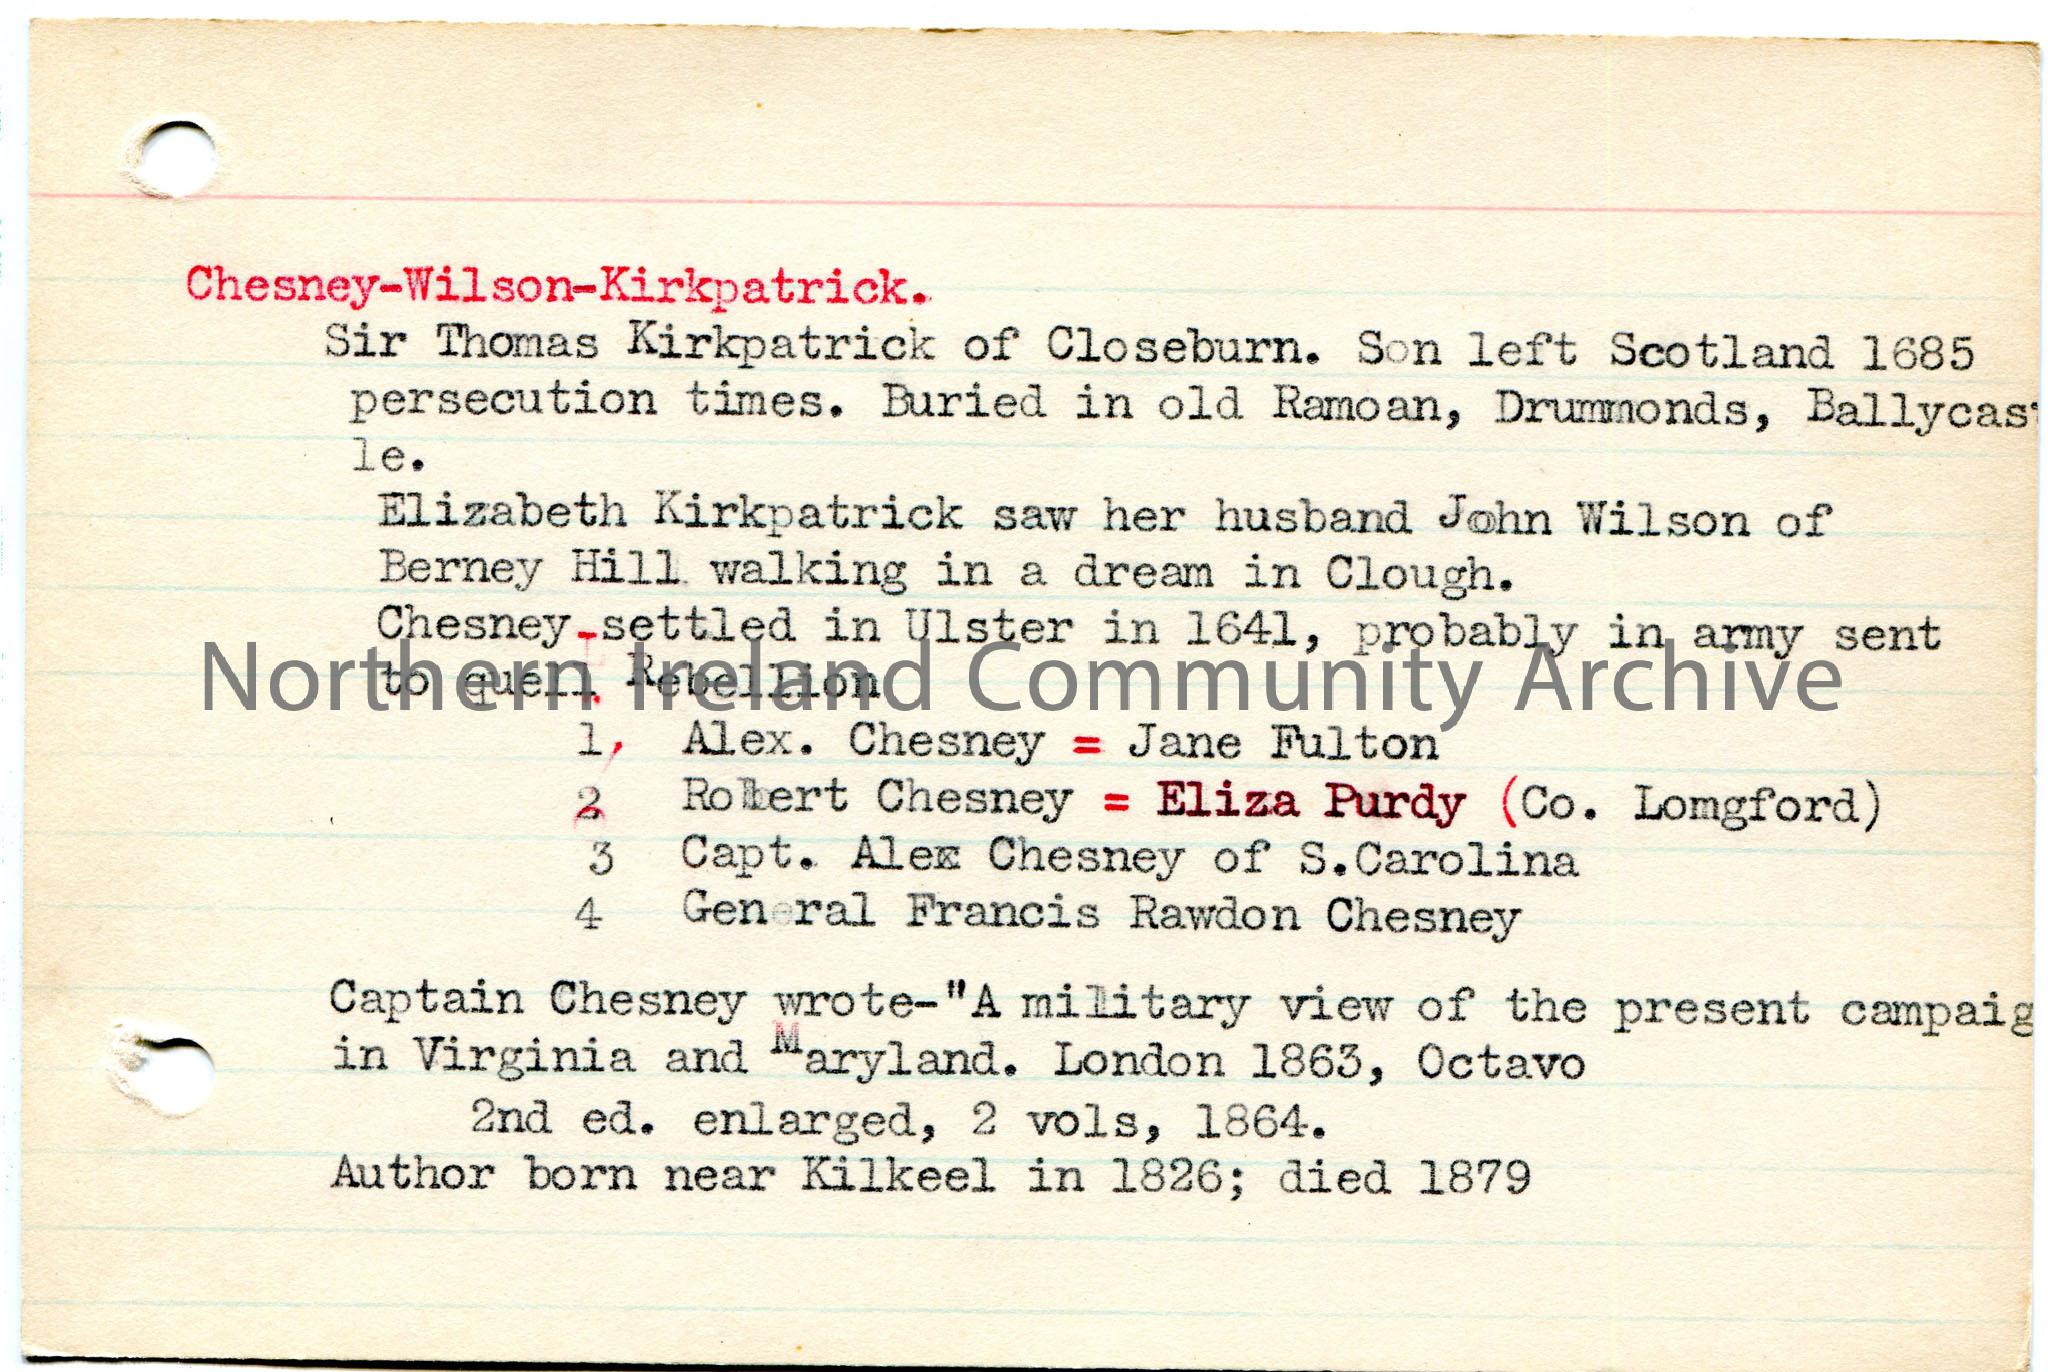 Chesney-Wilson-Kirkpatrick.
Sir Thomas Kirkpatrick of Closeburn. Son left Scotland 1685
persecution times. Buried in old Ramoan, Drummonds, Ballycast
le.
Elizabeth Kirkpatrick saw her husband John Wilson of
Berney Hill walking in a dream in Clough.
Chesney-settled in Ulster in 1641, probably in army sent
to quell Rebellion
Northern Ireland Community Archive
1, Alex. Chesney = Jane Fulton
2 Robert Chesney = Eliza Purdy (Co. Lomgford)
3 Capt. Alex Chesney of S.Carolina
4 General Francis Rawdon Chesney
Captain Chesney wrote-"A military view of the present campaig
in Virginia and Maryland. London 1863, Octavo
2nd ed. enlarged, 2 vols, 1864.
Author born near Kilkeel in 1826; died 1879